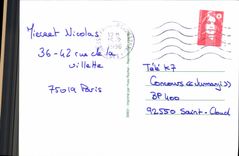 Mierret Nicolas
36-42 rue de la
Villette
75019 Paris
Télé K7
Concours «Jumanji»
BP 400
92550 Saint-Cloud